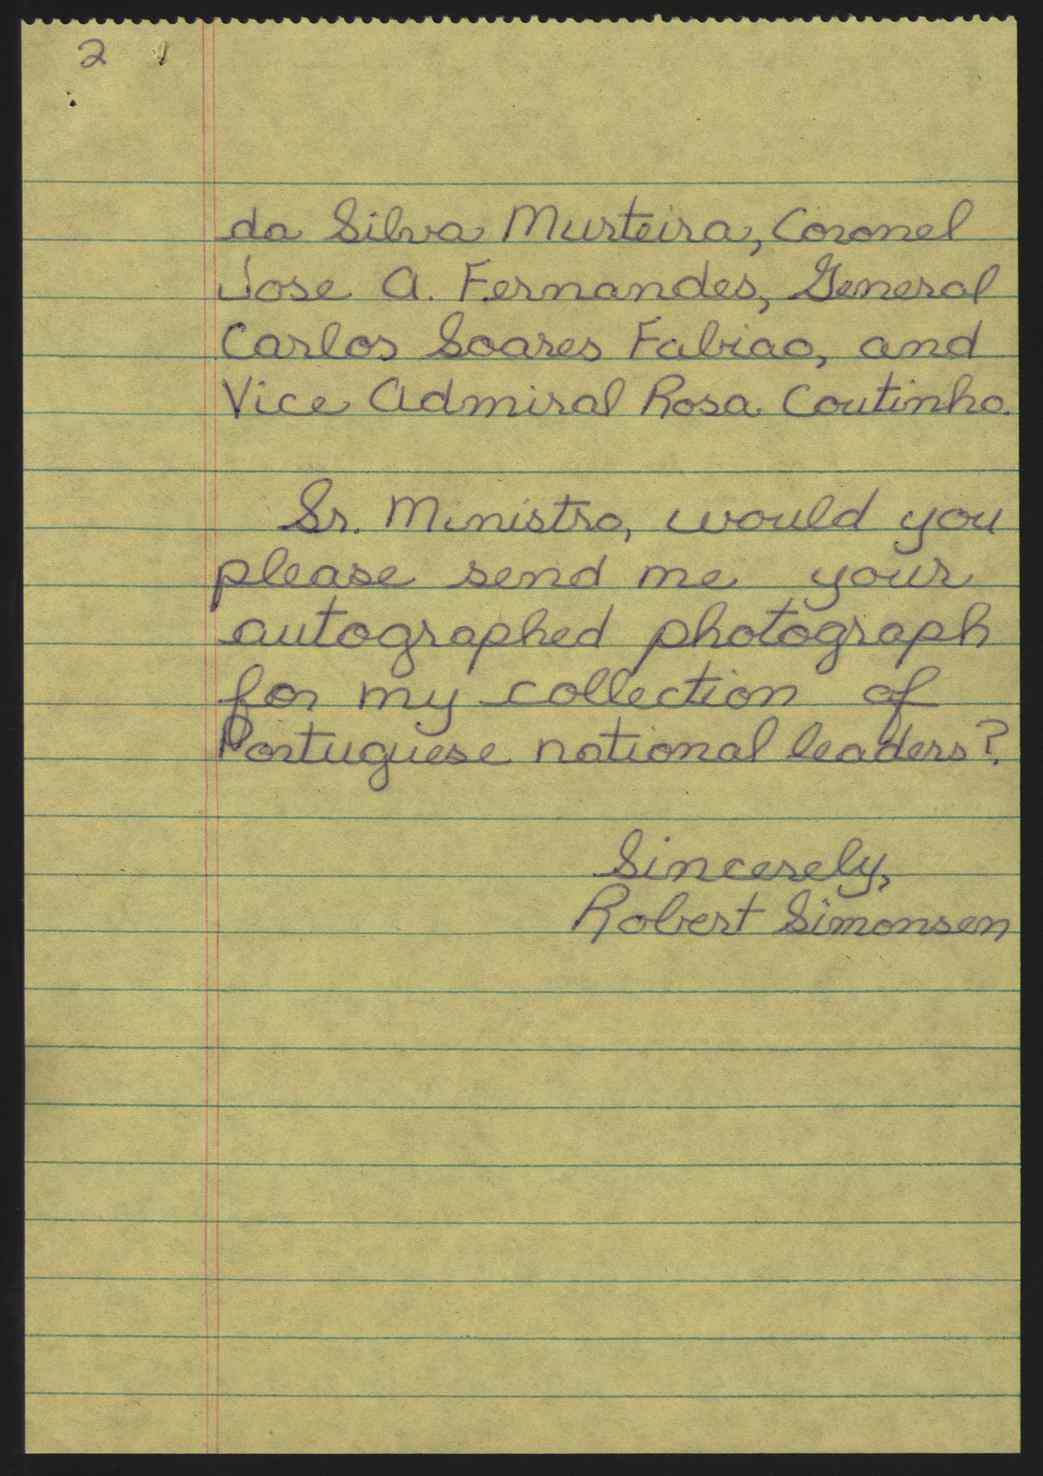 2
da Silva Murteira, Coronel
Jose A. Fernandes, General
Carlos Soares Fabiao, and
Vice Admiral Rosa Coutinho.
Sr. Ministro, would you
please send me your
autographed photograph
for my collection of
Portuguese national leaders?
Sincerely,
Robert Simonsen